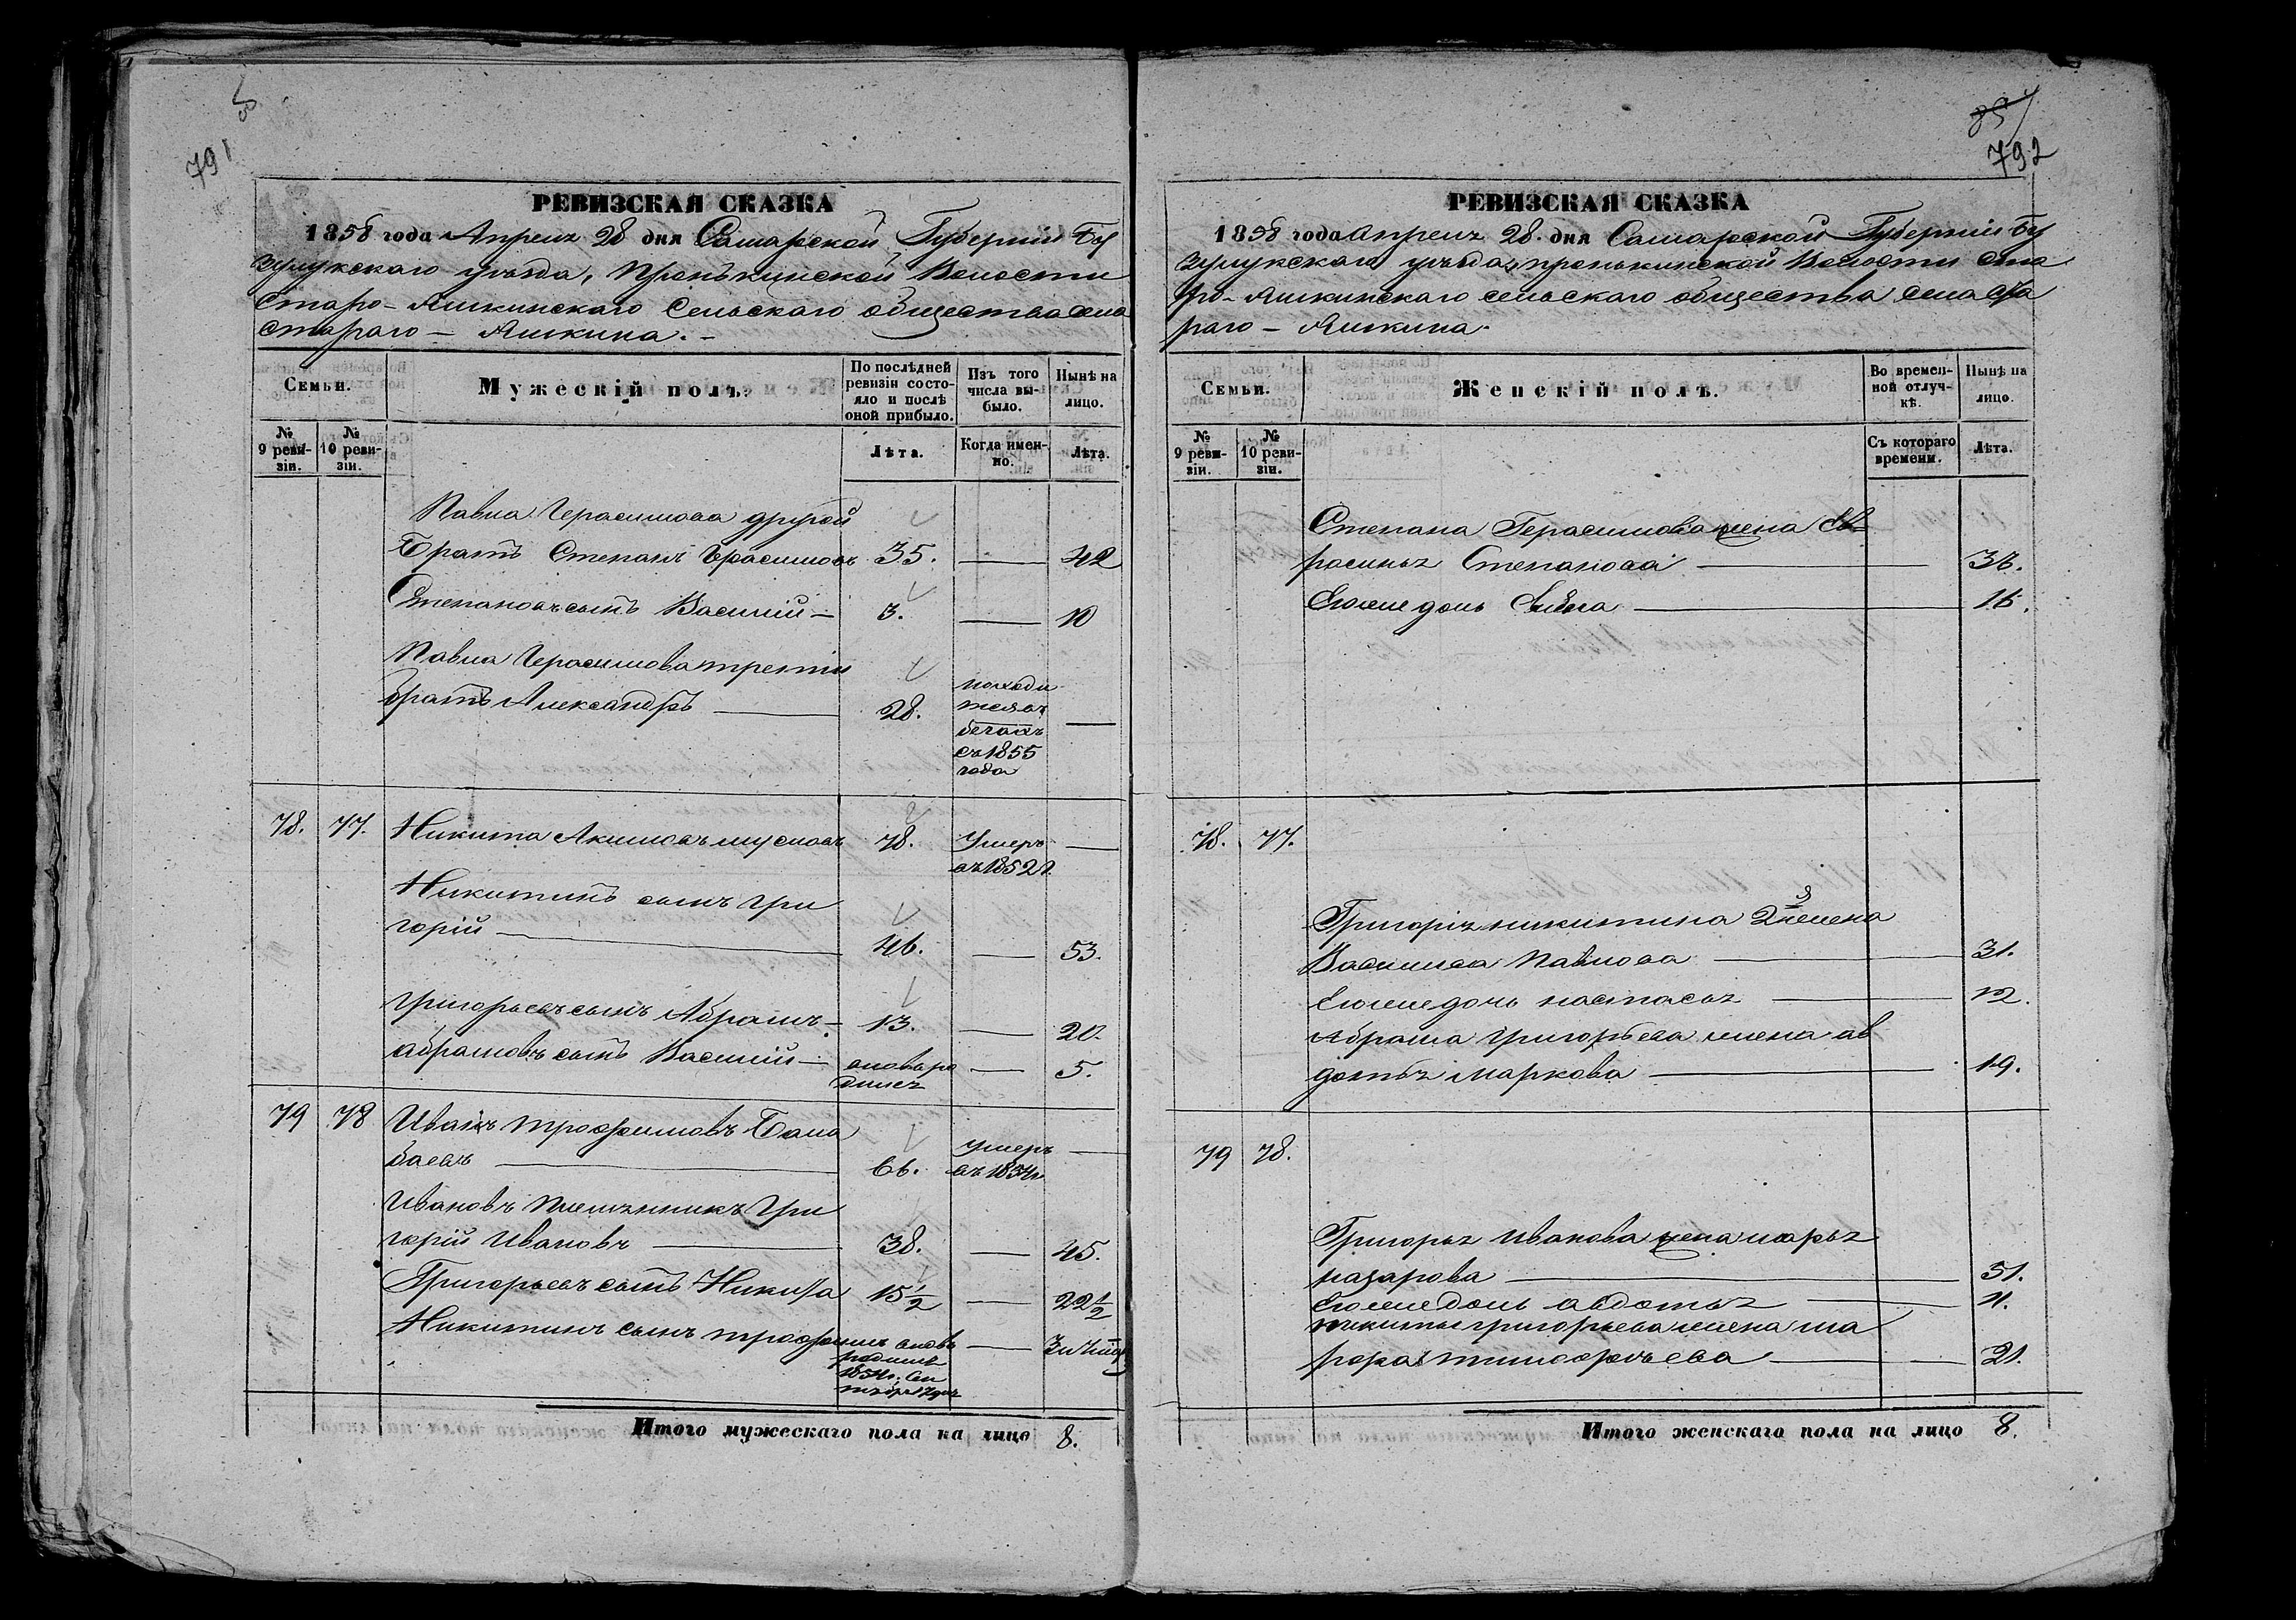 791
РЕВИЗСКАЯ СКАЗКА
1858 года Апреля 28 дня Самарской Губернии Бу
зулукскаго уезда, Пронькинской Волости
Старо-Ашкинскаго Сельскаго общества села
Стараго - Ашкина. -
Семьи.
Мужескій полъ.
По послѣдней ревизіи состояло и послѣ оной прибыло.
Изъ того числа выбыло.
Нынѣ на лицо.
№ 9 ревизіи.
№ 10 ревизіи.
Лѣта.
Когда именно.
Лѣта.
Павла Герасимова другой
Братъ Степанъ Герасимовъ 35. — 42
Степановъ сынъ Василій — 3. — 10
Павла Герасимова третiй
братъ Александръ — 28. —
находи
тся въ
бегахъ
съ 1855
года
78. 77. Никита Акимовъ 78. Умеръ —
въ 1852 г.
Никитинъ сынъ Гри
горій — 46. — 53.
Григорьевъ сынъ Абрамъ — 13. — 20.
Абрамовъ сынъ Василій — вновь ро — 5.
дился
79 78 Иванъ Трофимовъ Бала
баевъ — 66. Умеръ —
въ 1854 г.
Ивановъ племянникъ Гри
горій Ивановъ — 38. — 45.
Григорьевъ сынъ Никита 15 1/2 — 22 1/2
Никитинъ сынъ Трофимъ вновь —
родился
1854 г. Сен
Итого мужескаго пола на лицо 8.
857
792
РЕВИЗСКАЯ СКАЗКА
1858 года апреля 28. дня Самарской Губерніи Бу
зулукскаго уѣзда, пронькинской Волости Ста
ро-Ашкинскаго сельскаго общества села Ста
раго - Ашкина.
Семьи.
Женскій полъ.
Во временной отлучкѣ.
Нынѣ на лицо.
№ 9 ревизіи.
№ 10 ревизіи.
Съ котораго времени.
Лѣта.
Степана Герасимова жена Еф
росинья Степанова — 36.
Его же дочь — 16.
78. 77.
Григорія никитина 2я жена
Василиса Павлова — 31.
Его же дочь настасья — 12.
Абрама Григорьева жена ав
дотья Маркова — 19.
79 78.
Григорья Иванова жена марья
назарова — 51.
Его же дочь авдотья — 11.
никиты григорьева жена ма
тимофеева — 21.
Итого женскаго пола на лицо 8.